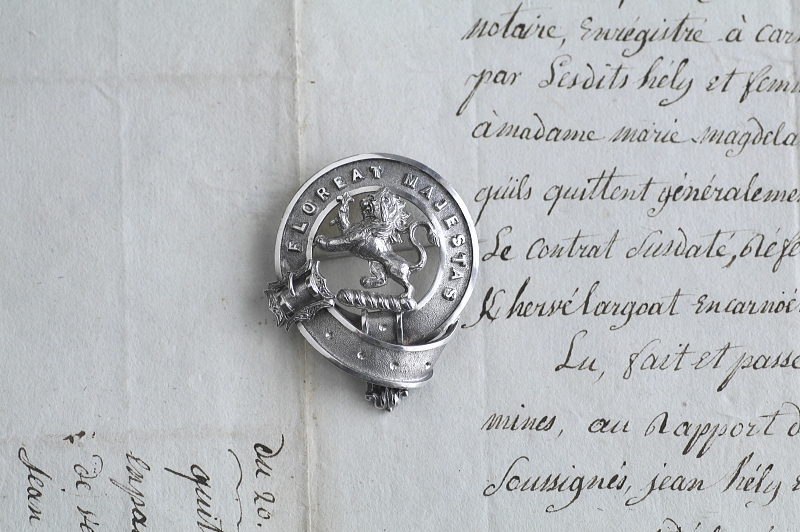 FLOREAT MAJESTAS
notaire, Enrégistré à car
par Lesdits hély et fem
à madame marie magdela
qu'ils quittent généraleme
Le contrat Susdaté, Réfé
Khervélargoat en carnoë
Lu, fait et passé
mines, au Rapport d
Soussignés, jean hély e
du 20.
quit
enpa
de ve
jean